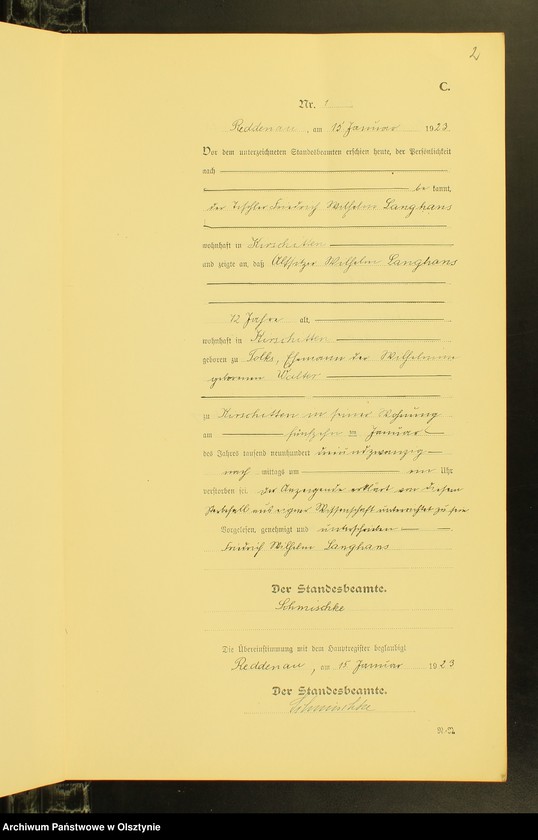 2
C.
Nr. 1
Reddenau, am 15 Januar 1923
Vor dem unterzeichneten Standesbeamten erschien heute, der Persönlichkeit
nach
be kannt,
der Tischler Friedrich Wilhelm Langhans
wohnhaft in Kirschitten
und zeigte an, daß Altsitzer Wilhelm Langhans
72 Jahre alt,
wohnhaft in Kirschitten
geboren zu Tolks, Ehemann der Wilhelmine
geborenen Walter
zu Kirschitten in seiner Wohnung
am fünfzehn ten Januar
des Jahres tausend neunhundert dreiundzwanzig
nach mittags um ein Uhr
verstorben sei. Der Anzeigende erklärt von diesem
Sterbefall aus eigner Wissenschaft unterrichtet zu sein
Vorgelesen, genehmigt und unterschrieben
Friedrich Wilhelm Langhans
Der Standesbeamte.
Schmischke
Die Übereinstimmung mit dem Hauptregister beglaubigt
Reddenau, am 15 Januar 1923
Der Standesbeamte.
Schmischke
Archiwum Państwowe w Olsztynie